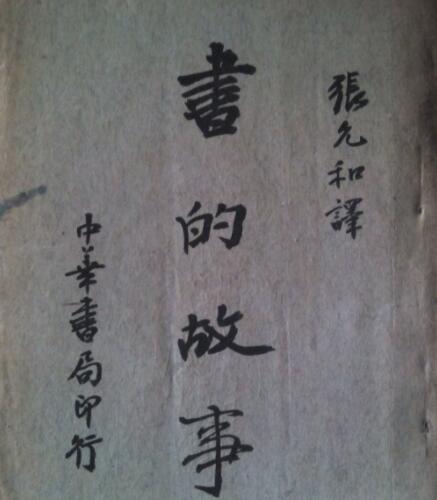 張允和譯
書的故事
中華書局印行